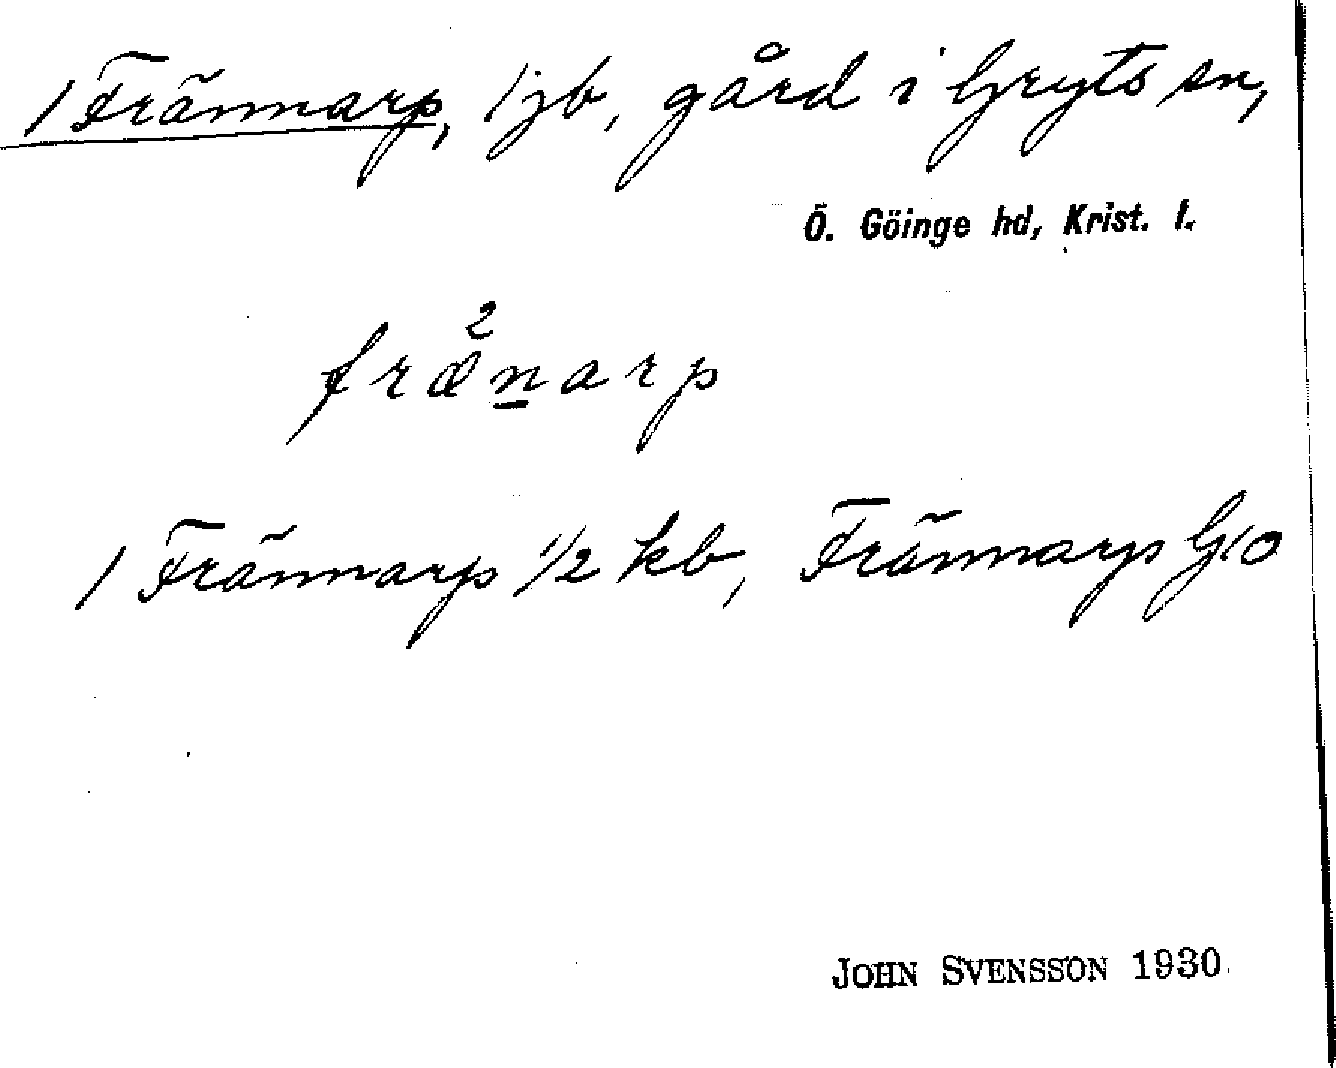 1 Frännarp, 1 jb, gård i Gryts sn,
Ö. Göinge hd, Krist. l.
fræ²n̲arp
1 Frännarp 1/2 kb, Frännarp GEO
JOHN SVENSSON 1930